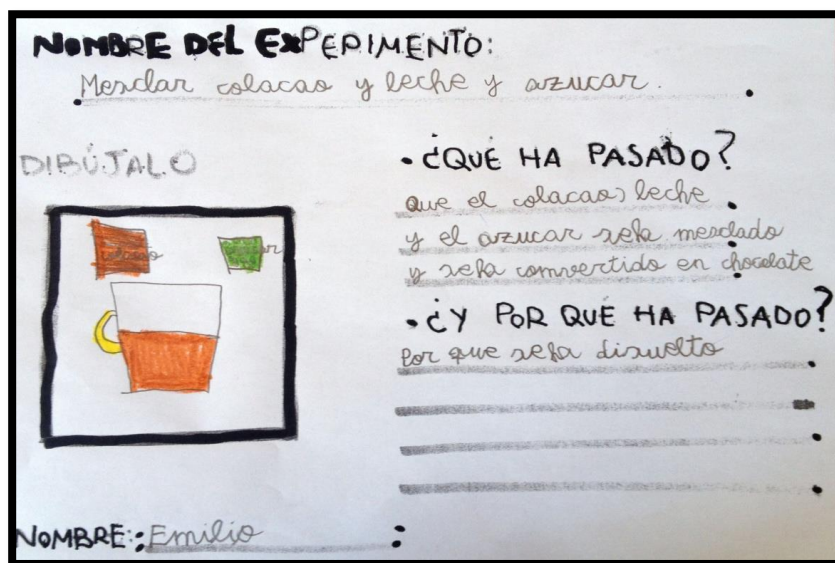 NOMBRE DEL EXPERIMENTO:
Mesclar colacao y leche y azucar.
DIBÚJALO
colacao
· ¿QUÉ HA PASADO?
que el colacao, leche
y el azucar seha mesclado
y seha comvertido en chocolate
· ¿Y POR QUÉ HA PASADO?
Por que seha disuelto
NOMBRE: Emilio